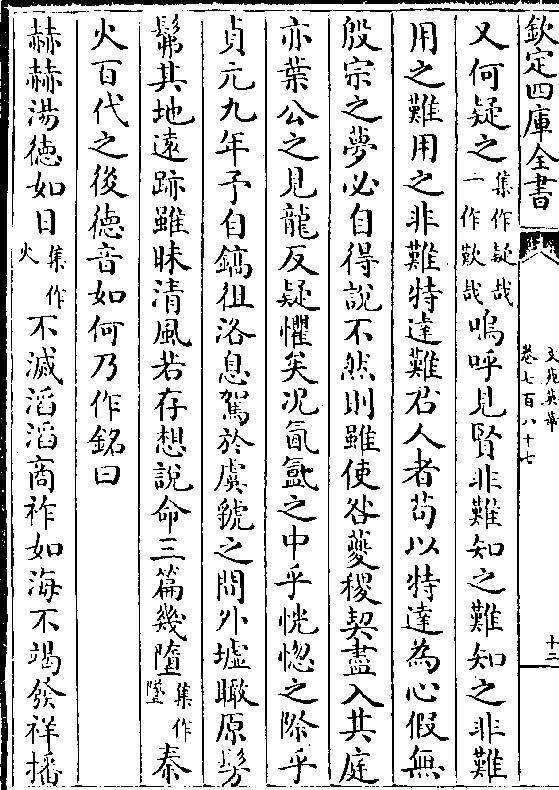 欽定四庫全書
文苑英華
卷七百八十七
十三
又何疑之集作疑哉一作歎哉嗚呼見賢非難知之難知之非難
用之難用之非難特達難君人者苟以特達為心假無
殷宗之夢必自得說不然則雖使咎夔稷契盡入其庭
亦葉公之見龍反疑懼矣况氤氳之中乎恍惚之際乎
貞元九年予自鎬徂洛息駕於虞虢之間外墟瞰原髣
髴其地遠跡雖昧清風若存想說命三篇幾墮集作墜秦
火百代之後德音如何乃作銘曰
赫赫湯德如日集作火不滅滔滔商祚如海不竭發祥播